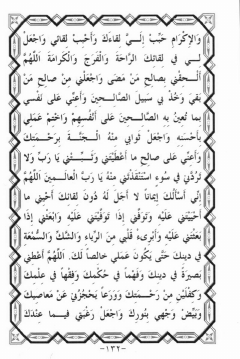 وَالْإِكْرَامِ حَبِّبْ إِلَيَّ لِقَاءَكَ وَأَحْبِبْ لِقَائِي وَاجْعَلْ
لِي فِي لِقَائِكَ الرَّاحَةَ وَالْفَرَجَ وَالْكَرَامَةَ اللَّهُمَّ
أَلْحِقْنِي بِصَالِحِ مَنْ مَضَى وَاجْعَلْنِي مِنْ صَالِحِ مَنْ
بَقِيَ وَخُذْ بِي سَبِيلَ الصَّالِحِينَ وَأَعِنِّي عَلَى نَفْسِي
بِمَا تُعِينُ بِهِ الصَّالِحِينَ عَلَى أَنْفُسِهِمْ وَاخْتِمْ عَمَلِي
بِأَحْسَنِهِ وَاجْعَلْ ثَوَابِي مِنْهُ الْجَنَّةَ بِرَحْمَتِكَ
وَأَعِنِّي عَلَى صَالِحِ مَا أَعْطَيْتَنِي وَثَبِّتْنِي يَا رَبِّ وَلَا
تَرُدَّنِي فِي سُوءٍ اسْتَنْقَذْتَنِي مِنْهُ يَا رَبَّ الْعَالَمِينَ اللَّهُمَّ
إِنِّي أَسْأَلُكَ إِيمَاناً لَا أَجَلَ لَهُ دُونَ لِقَائِكَ أَحْيِنِي مَا
أَحْيَيْتَنِي عَلَيْهِ وَتَوَفَّنِي إِذَا تَوَفَّيْتَنِي عَلَيْهِ وَابْعَثْنِي إِذَا
بَعَثْتَنِي عَلَيْهِ وَأَبْرِئْ قَلْبِي مِنَ الرِّيَاءِ وَالشَّكِّ وَالسُّمْعَةِ
فِي دِينِكَ حَتَّى يَكُونَ عَمَلِي خَالِصاً لَكَ. اللَّهُمَّ أَعْطِنِي
بَصِيرَةً فِي دِينِكَ وَفَهْماً فِي حُكْمِكَ وَفِقْهاً فِي عِلْمِكَ
وَكِفْلَيْنِ مِنْ رَحْمَتِكَ وَوَرَعاً يَحْجُزُنِي عَنْ مَعَاصِيكَ
وَبَيِّضْ وَجْهِي بِنُورِكَ وَاجْعَلْ رَغْبَتِي فِيمَا عِنْدَكَ
-١٣٢-